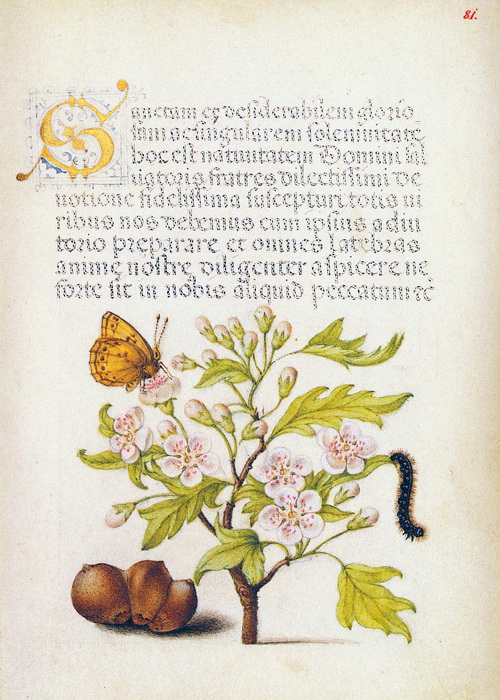 81.
Sanctam et desiderabilem glorio
sam ac singularem solemnitatē
hoc est natiuitatem Domini sal
uatoris fratres dilectissimi de
uotione fidelissima suscepturi totis ui
ribus nos debemus cum ipsius adiu
torio preparare et omnes latebras
anime nostre diligenter aspicere ne
forte sit in nobis aliquid peccatum